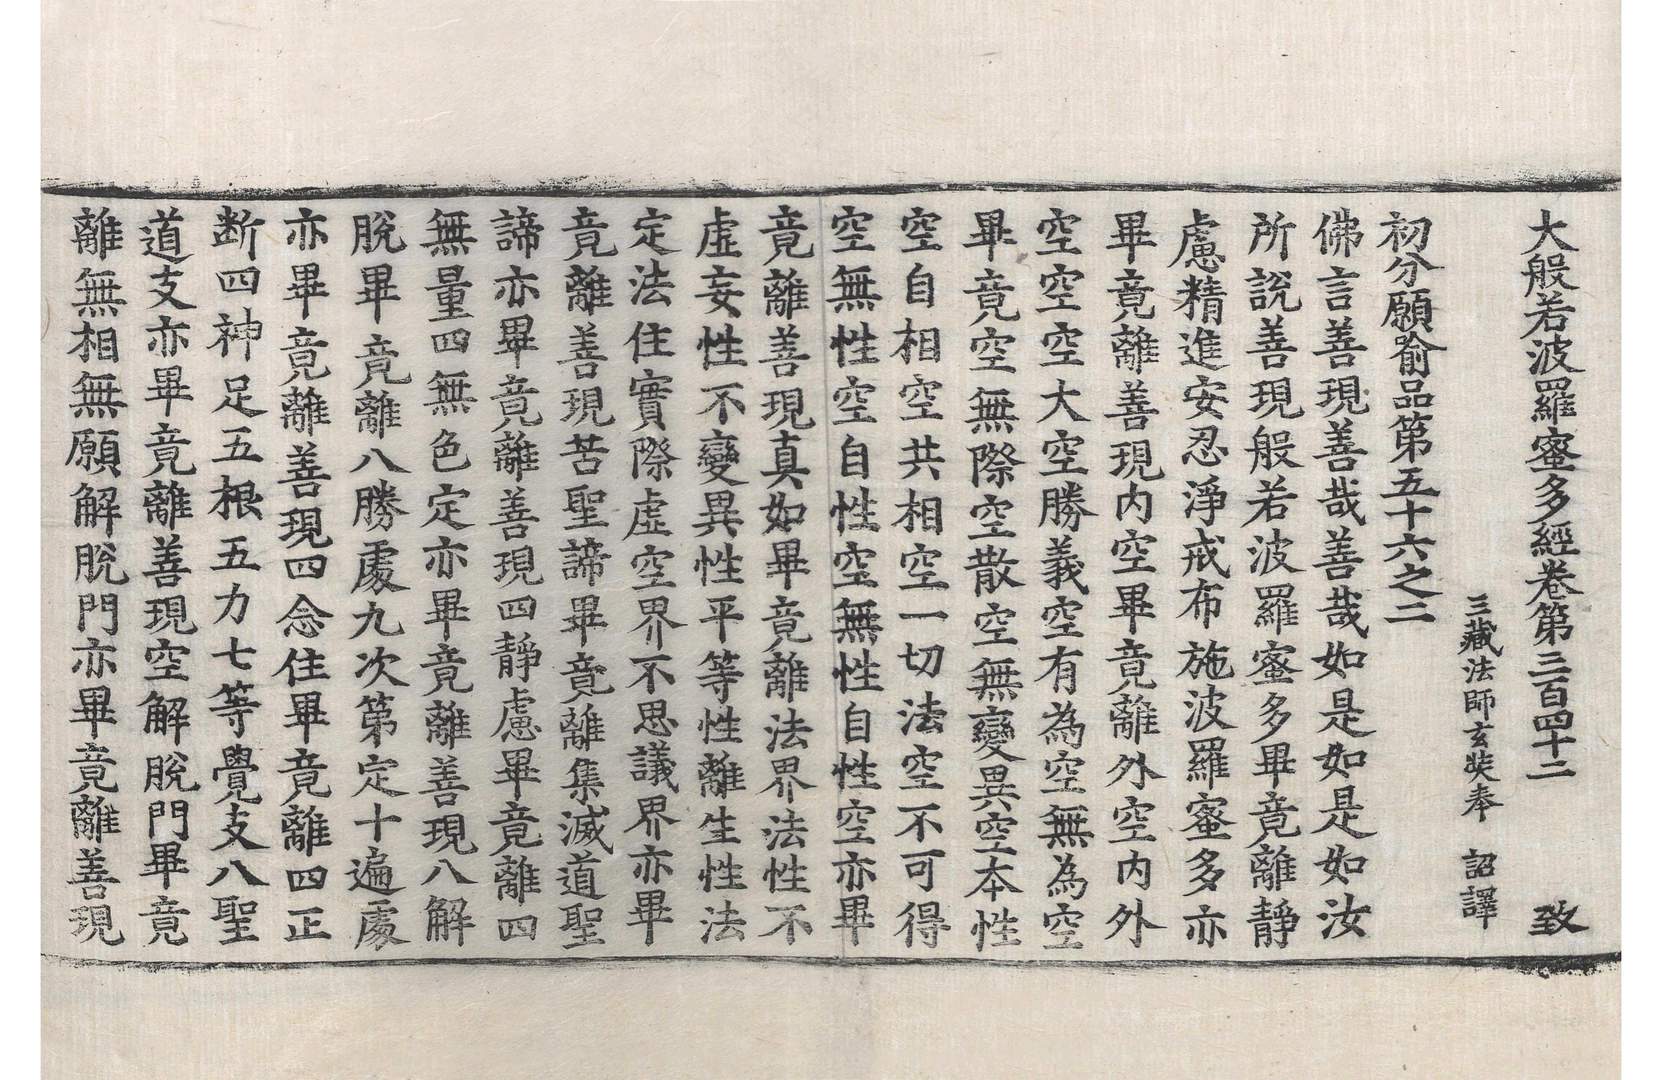 大般若波羅蜜多經卷第三百四十二 致
三藏法師玄奘奉 詔譯
初分願喻品第五十六之二
佛言善現善哉善哉如是如是如汝
所說善現般若波羅蜜多畢竟離靜
慮精進安忍淨戒布施波羅蜜多亦
畢竟離善現內空畢竟離外空內外
空空空大空勝義空有為空無為空
畢竟空無際空散空無變異空本性
空自相空共相空一切法空不可得
空無性空自性空無性自性空亦畢
竟離善現真如畢竟離法界法性不
虛妄性不變異性平等性離生性法
定法住實際虛空界不思議界亦畢
竟離善現苦聖諦畢竟離集滅道聖
諦亦畢竟離善現四靜慮畢竟離四
無量四無色定亦畢竟離善現八解
脫畢竟離八勝處九次第定十遍處
亦畢竟離善現四念住畢竟離四正
斷四神足五根五力七等覺支八聖
道支亦畢竟離善現空解脫門畢竟
離無相無願解脫門亦畢竟離善現